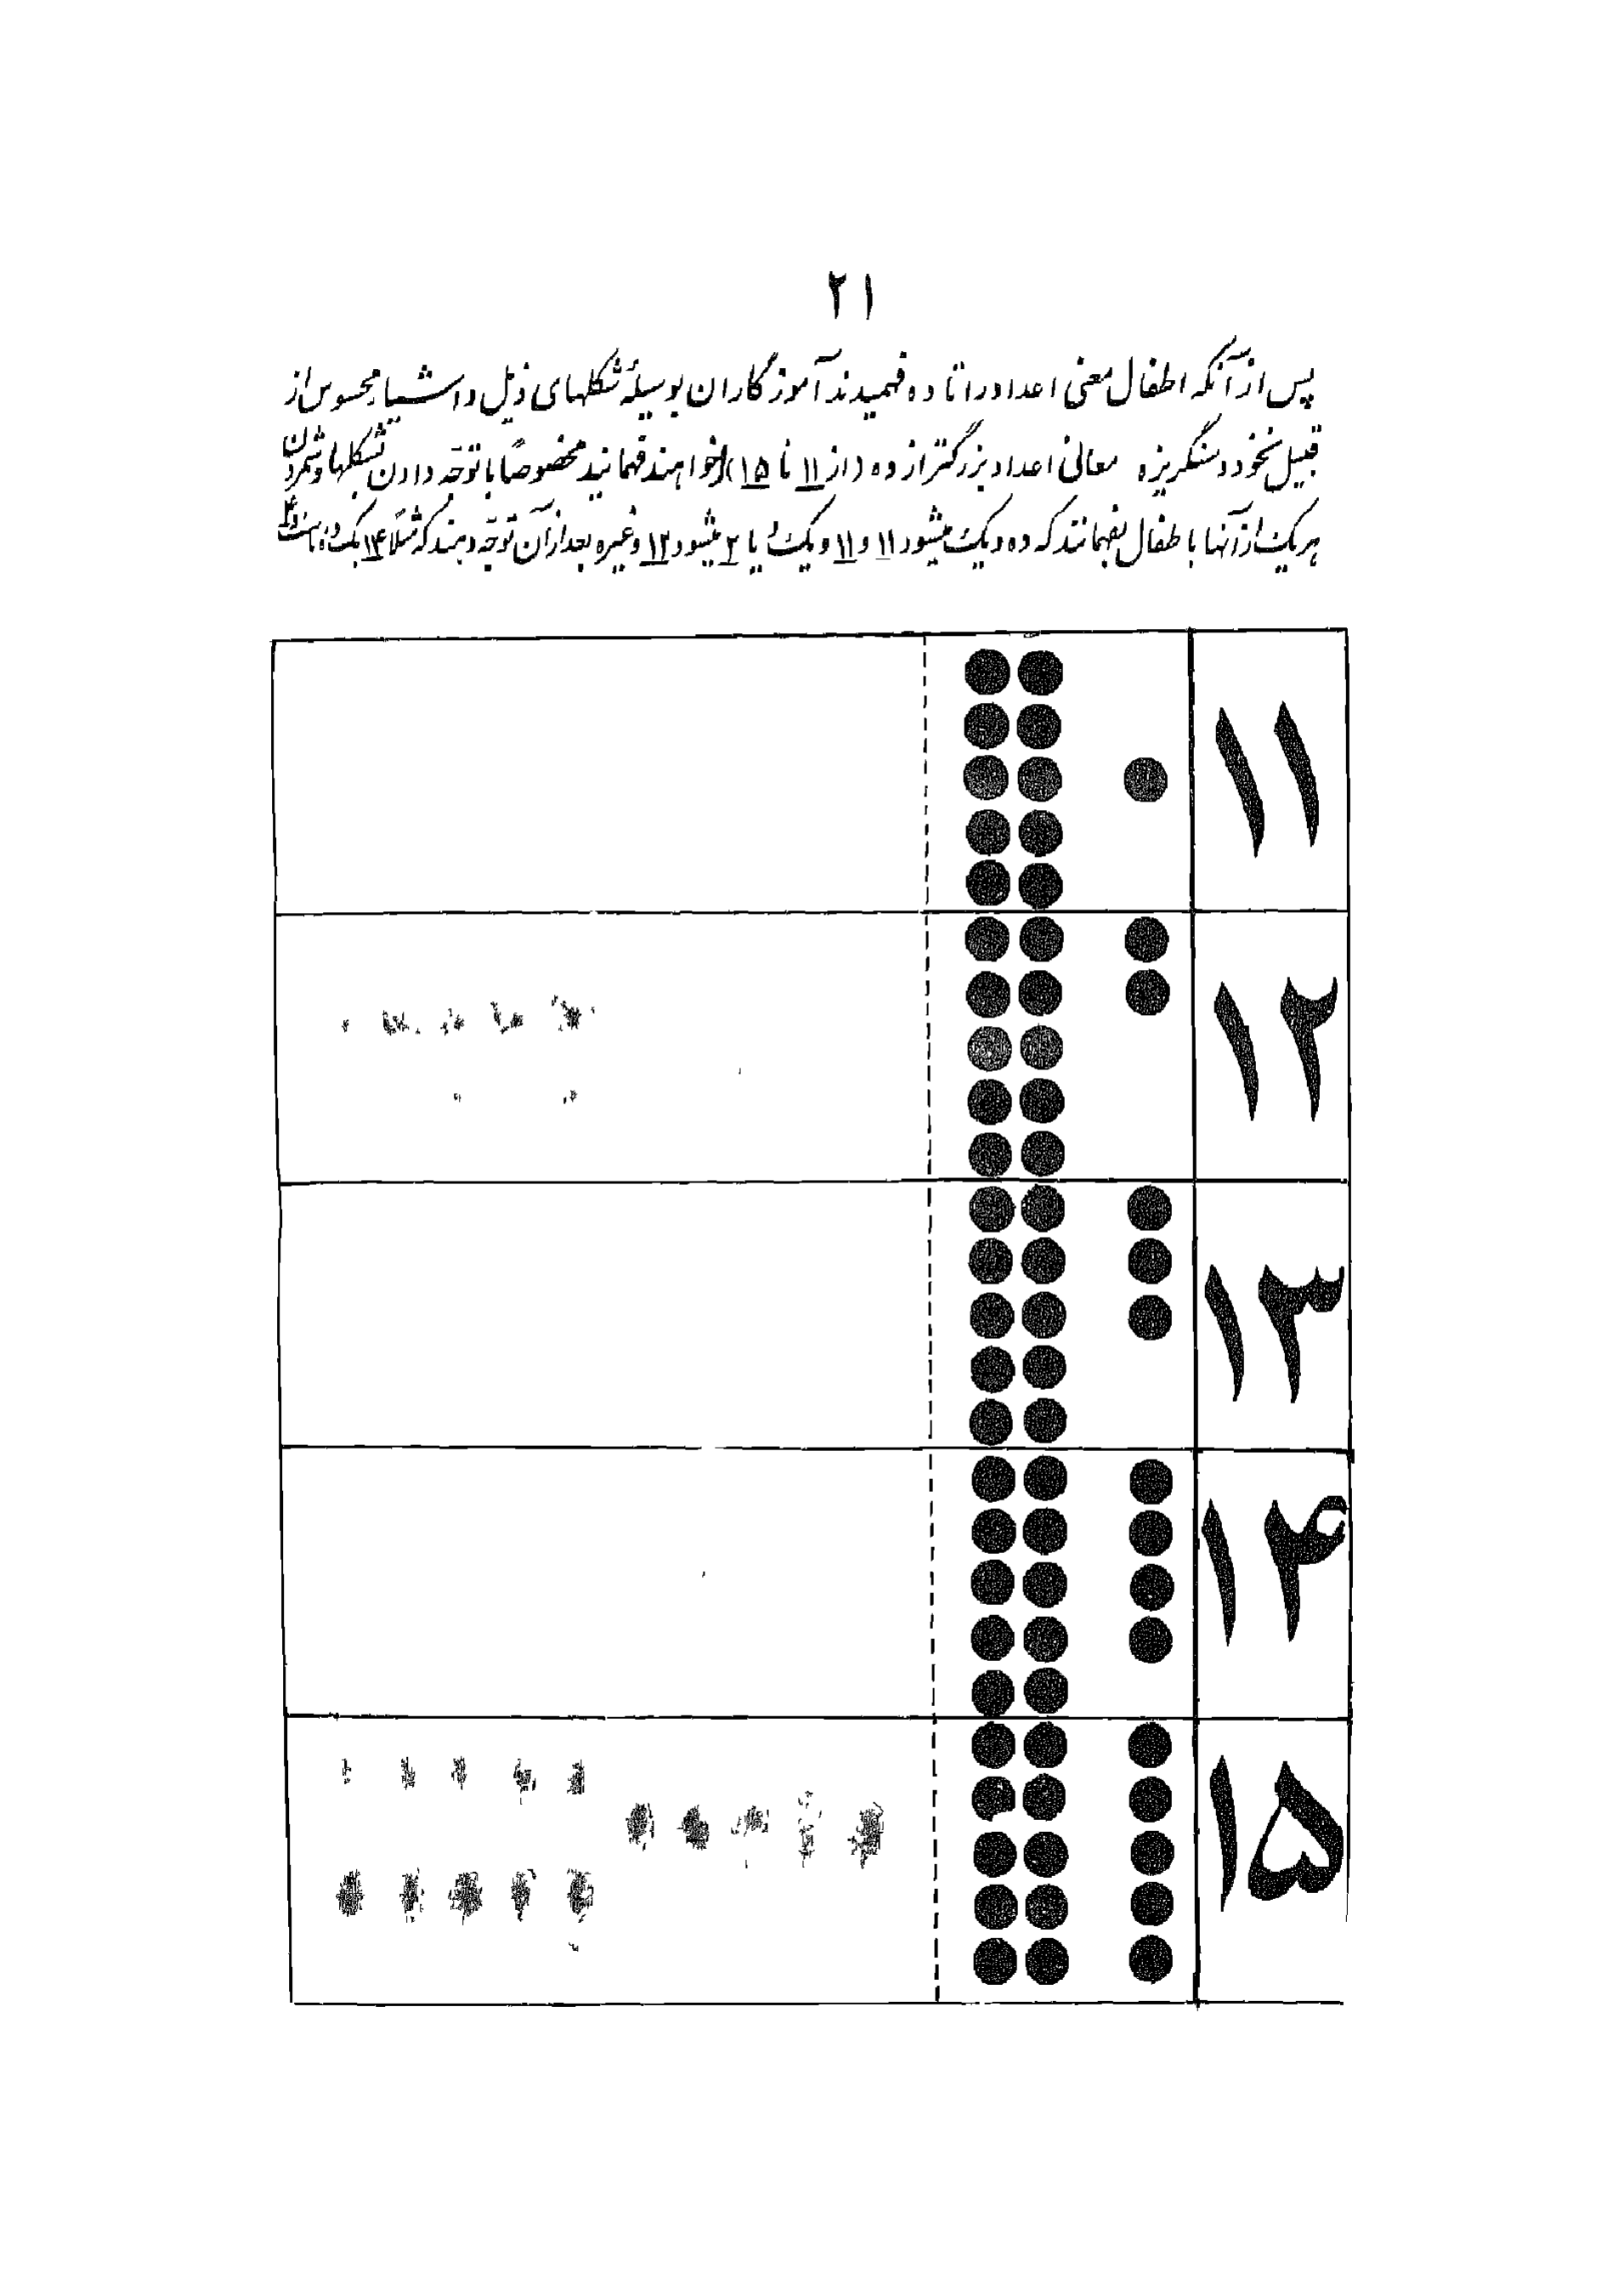 ۲۱
پس از آنکه اطفال معنی اعداد را تا ده فهمیدند آموزگاران بوسیلهٔ شکلهای ذیل و اشیاء محسوس از
قبیل نخود و سنگریزه معانی اعداد بزرگتر از ده (از ۱۱ تا ۱۵) را خواهند فهمانید مخصوصاً با توجّه دادن بشکلها و شمردن
هر یک از آنها با طفال بفهمانند که ده و یک میشود ۱۱ و ۱۱ و یک یا ۲ میشود ۱۲ و غیره بعد از آن توجّه دهند که مثلاً ۱۴ یک ده
۱۱
۱۲
۱۳
۱۴
۱۵